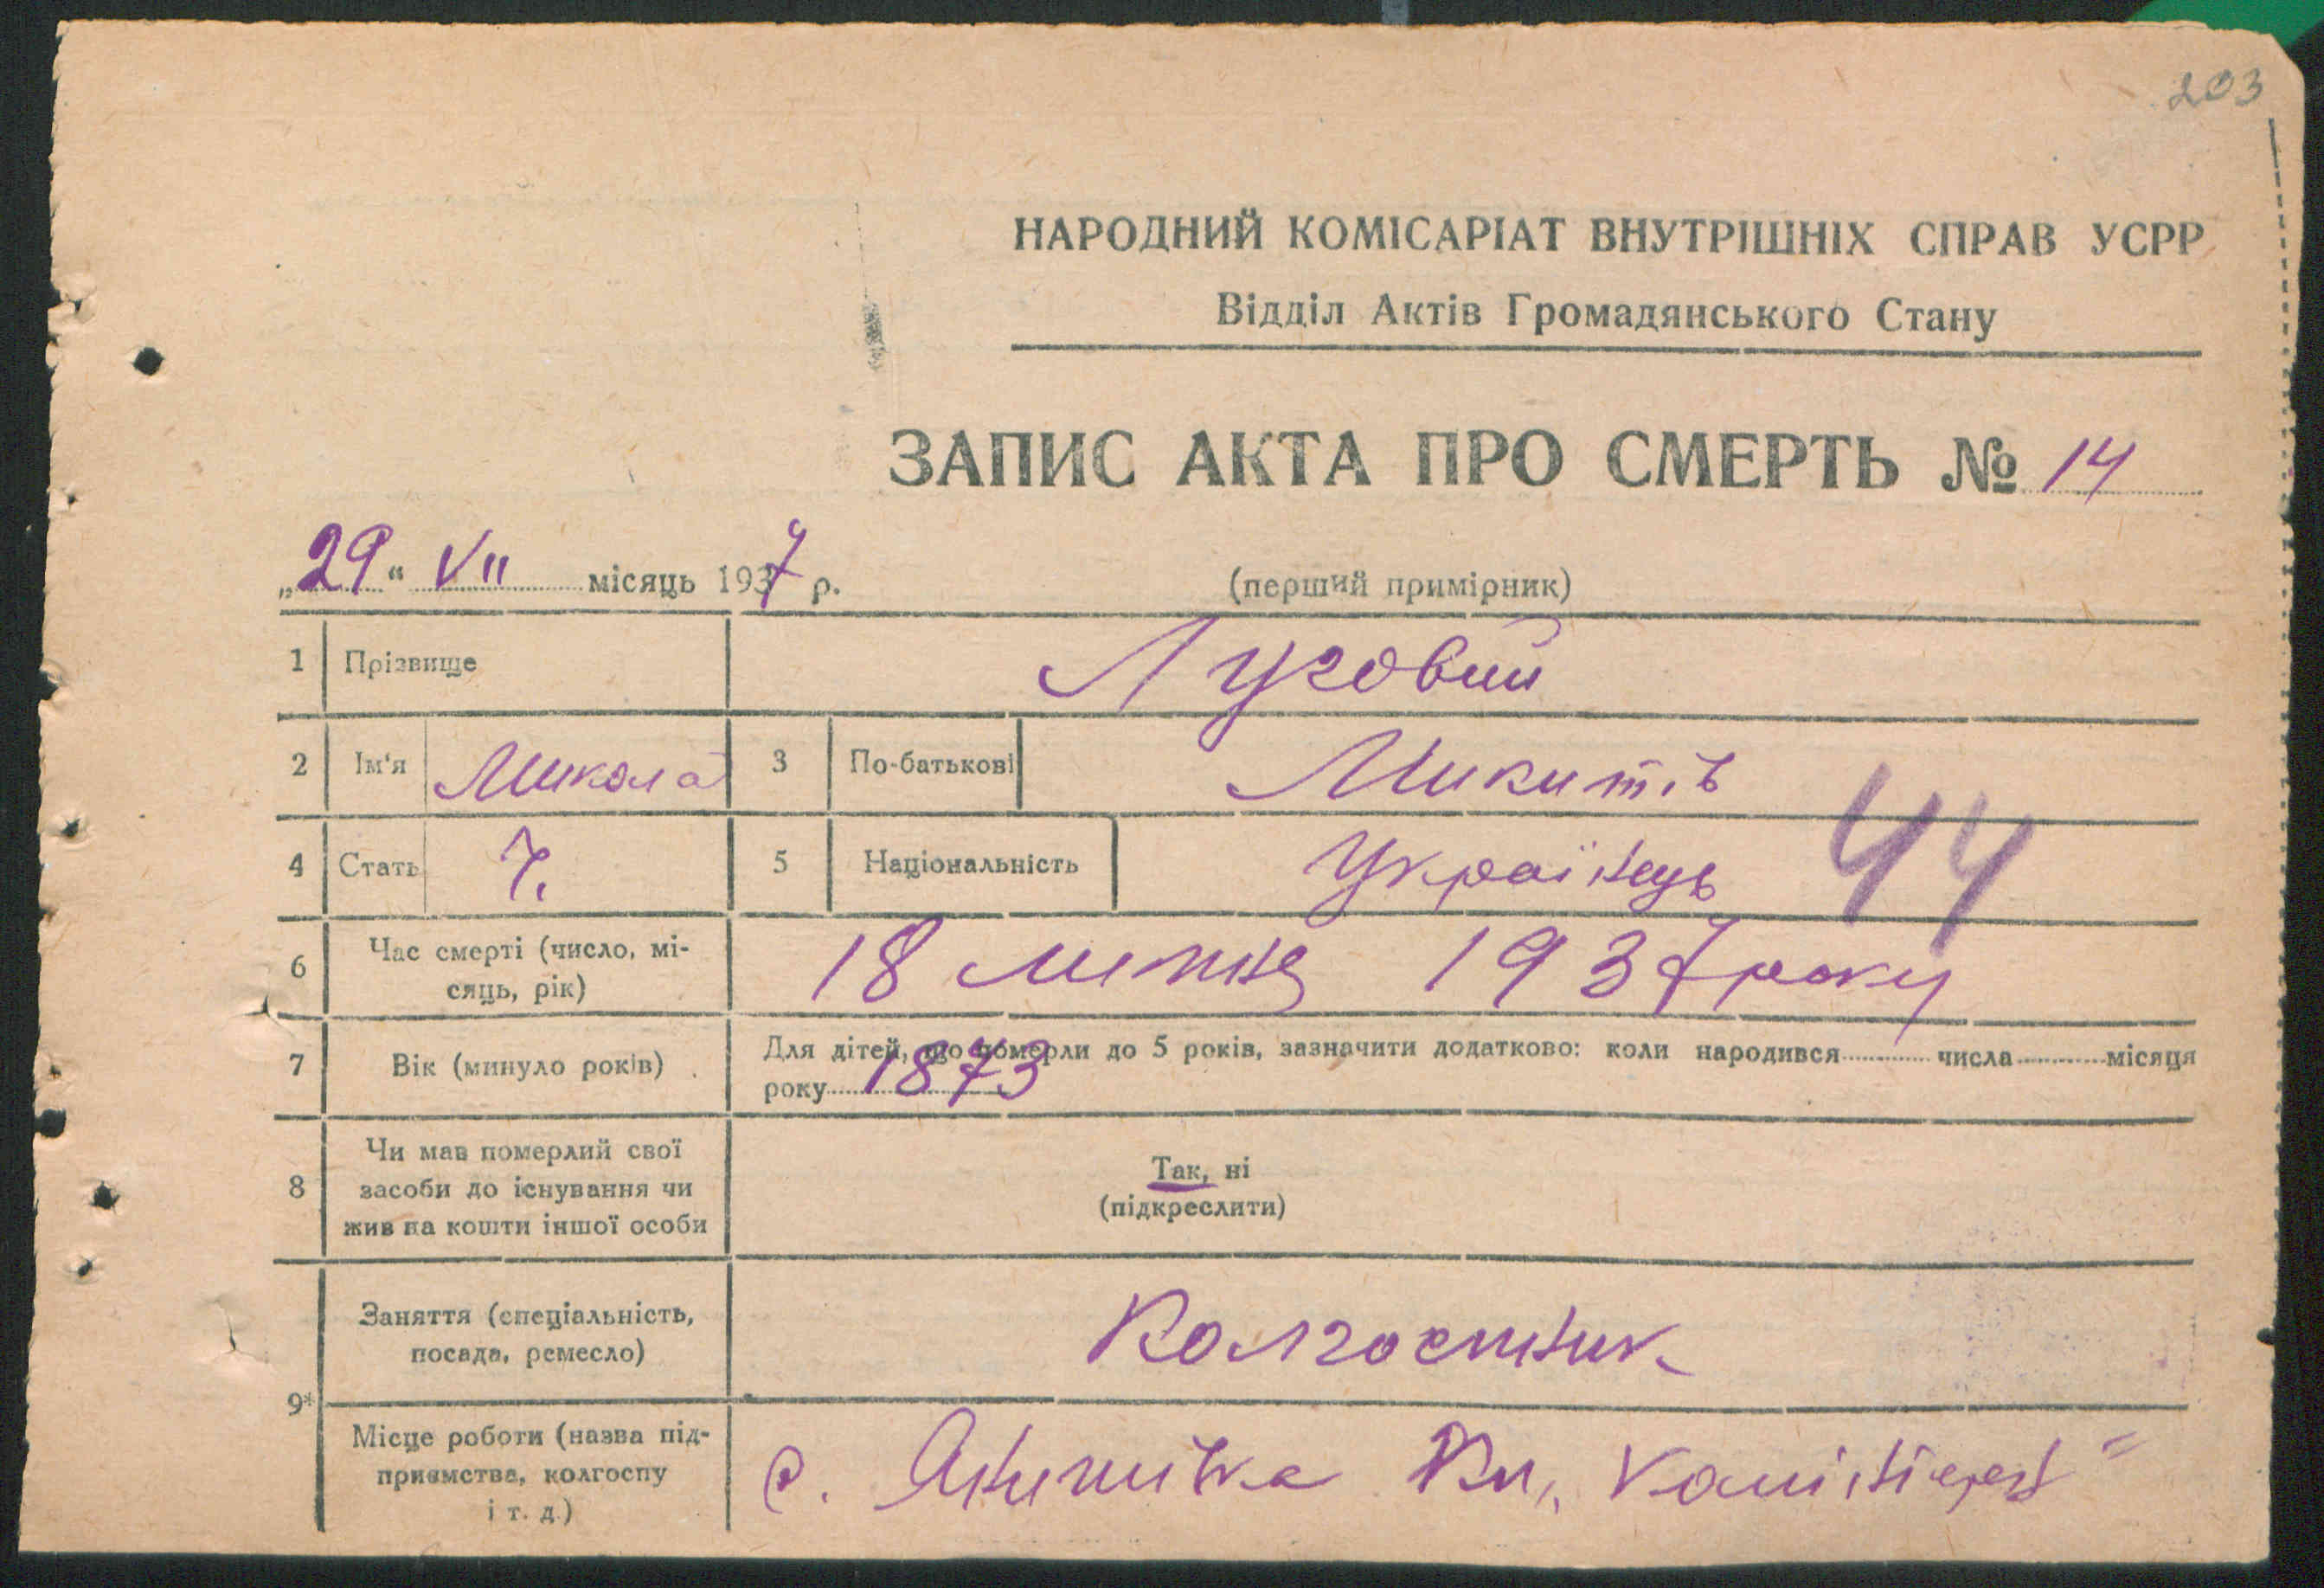 203
НАРОДНИЙ КОМІСАРІАТ ВНУТРІШНІХ СПРАВ УСРР
Відділ Актів Громадянського Стану
ЗАПИС АКТА ПРО СМЕРТЬ № 14
„29“ VII місяць 1937 р.
(перший примірник)
1 Прізвище Луговий
2 Ім'я Микола 3 По-батькові Микитів
4 Стать Ч. 5 Національність Українець
44
6 Час смерті (число, мі-
сяць, рік) 18 липня 1937 року
7 Вік (минуло років) Для дітей, що померли до 5 років, зазначити додатково: коли народився числа місяця
року 1873
8 Чи мав померлий свої
засоби до існування чи
жив на кошти іншої особи
Так, ні
(підкреслити)
9*
Заняття (спеціальність,
посада, ремесло) Колгоспник
Місце роботи (назва під-
приємства, колгоспу
і т. д.)
с.